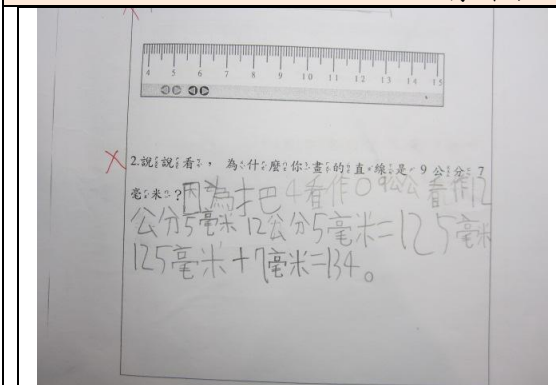 4 5 6 7 8 9 10 11 12 13 14 15
2.說說看,為什麼你畫的直線是9公分7
毫米?因為才把4看作0 9公公看作12
公分5毫米 12公分5毫米=125毫米
125毫米+7毫米=134。